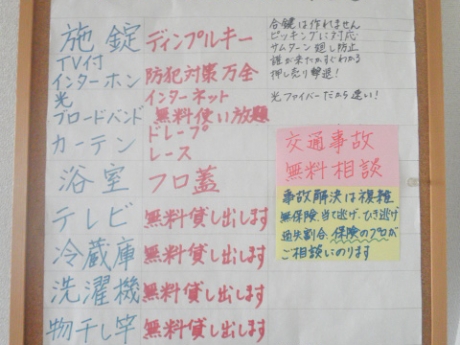 施錠 ディンプルキー
合鍵は作れません
ピッキングに対応
サムターン廻し防止
TV付
インターホン 防犯対策万全
誰が来たかすぐわかる
押し売り撃退!
光
ブロードバンド
インターネット
無料使い放題
光ファイバーだから速い!
カーテン
ドレープ
レース
浴室 フロ蓋
テレビ 無料貸し出します
冷蔵庫 無料貸し出します
洗濯機 無料貸し出します
物干し竿 無料貸し出します
交通事故
無料相談
事故解決は複雑
無保険、当て逃げ、ひき逃げ
過失割合、保険のプロが
ご相談にのります